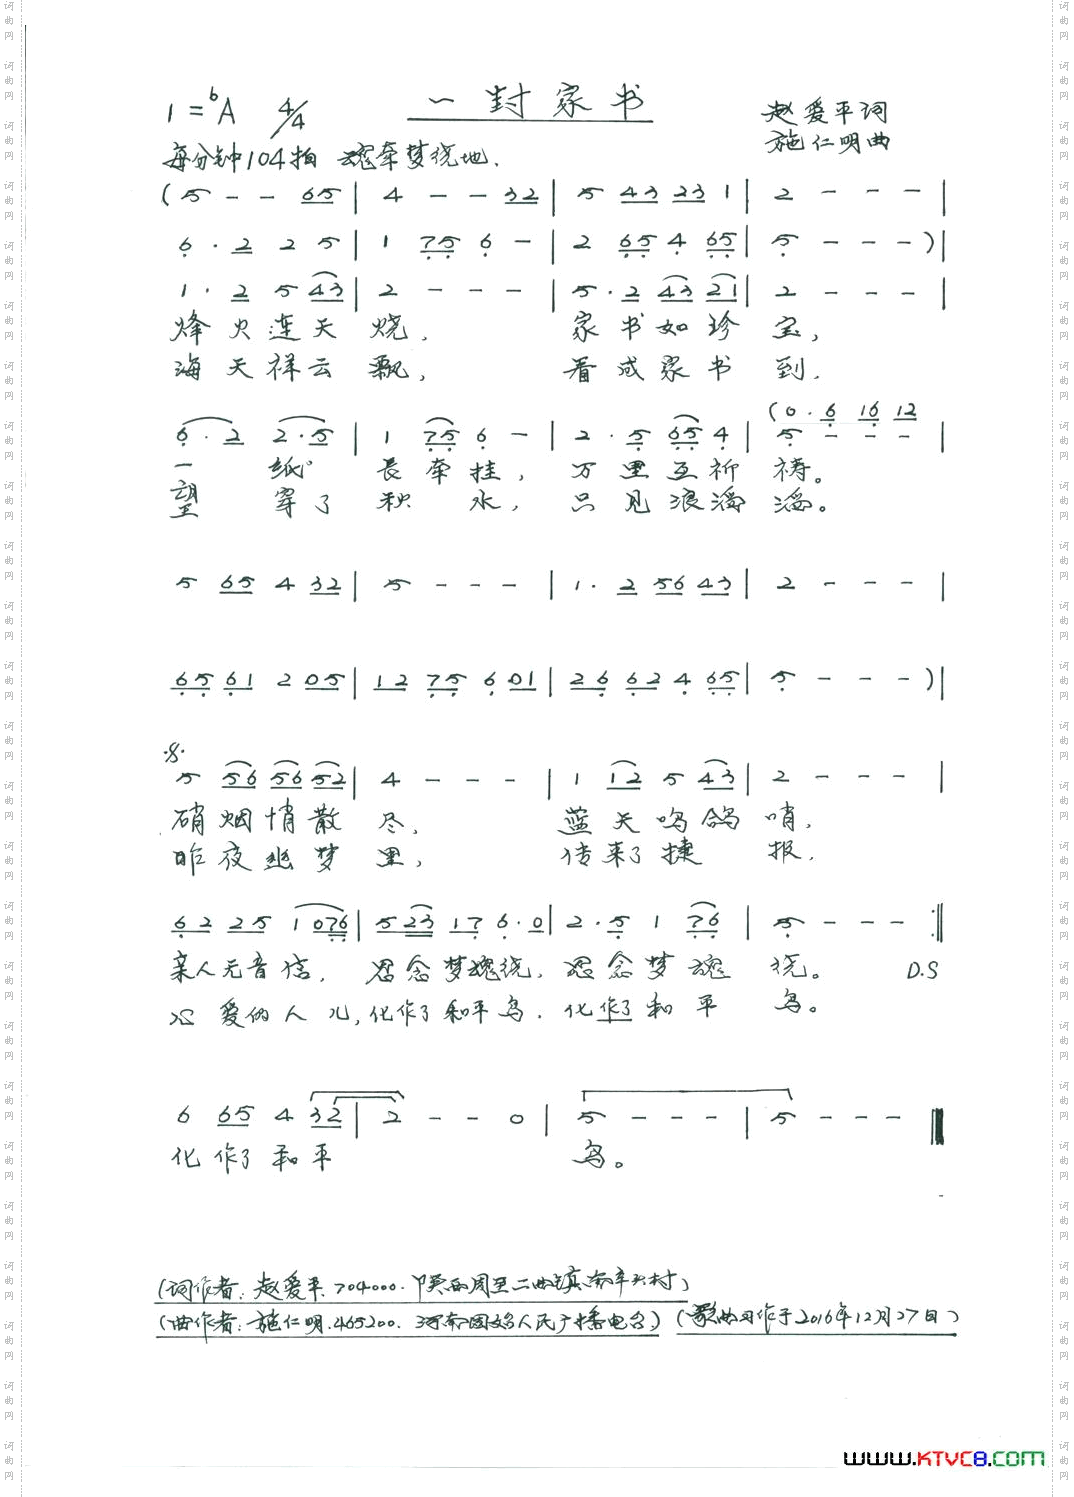 一封家书
1=♭A 4/4
赵爱平词
施仁明曲
每分钟104拍 魂牵梦绕地.
(5 - - 65 | 4 - - 32 | 5 43 23 1 | 2 - - - |
6· 2 2 5 | 1 75 6 - | 2 65 4 65 | 5 - - - )|
1· 2 5 43 | 2 - - - | 5· 2 43 21 | 2 - - - |
烽火连天烧, 家书如珍宝,
海天祥云飘, 看成家书到.
(0· 6 16 12
6· 2 2· 5 | 1 75 6 - | 2· 5 65 4 | 5 - - - |
一纸长牵挂, 万里互祈祷。
望穿了秋水, 只见浪滔滔。
5 65 4 32 | 5 - - - | 1· 2 56 43 | 2 - - - |
65 61 2 05 | 12 75 6 01 | 26 62 4 65 | 5 - - - )|
𝄋
5 56 56 52 | 4 - - - | 1 12 5 43 | 2 - - - |
硝烟悄散尽, 蓝天鸣鸽哨,
昨夜幽梦里, 传来了捷报.
62 25 1 076 | 5 23 17 6·0 | 2· 5 1 76 | 5 - - - :||
亲人无音信, 思念梦魂绕, 思念梦魂绕。 D.S
心爱的人儿, 化作了和平鸟. 化作了和平鸟。
6 65 4 32 | 2 - - 0 | 5 - - - | 5 - - - ||
化作了和平鸟。
(词作者: 赵爱平. 704000. 陕西周至二曲镇南辛头村)
(曲作者: 施仁明. 465200. 河南固始人民广播电台) (歌曲习作于2016年12月27日)
www.KTVC8.com
词曲网